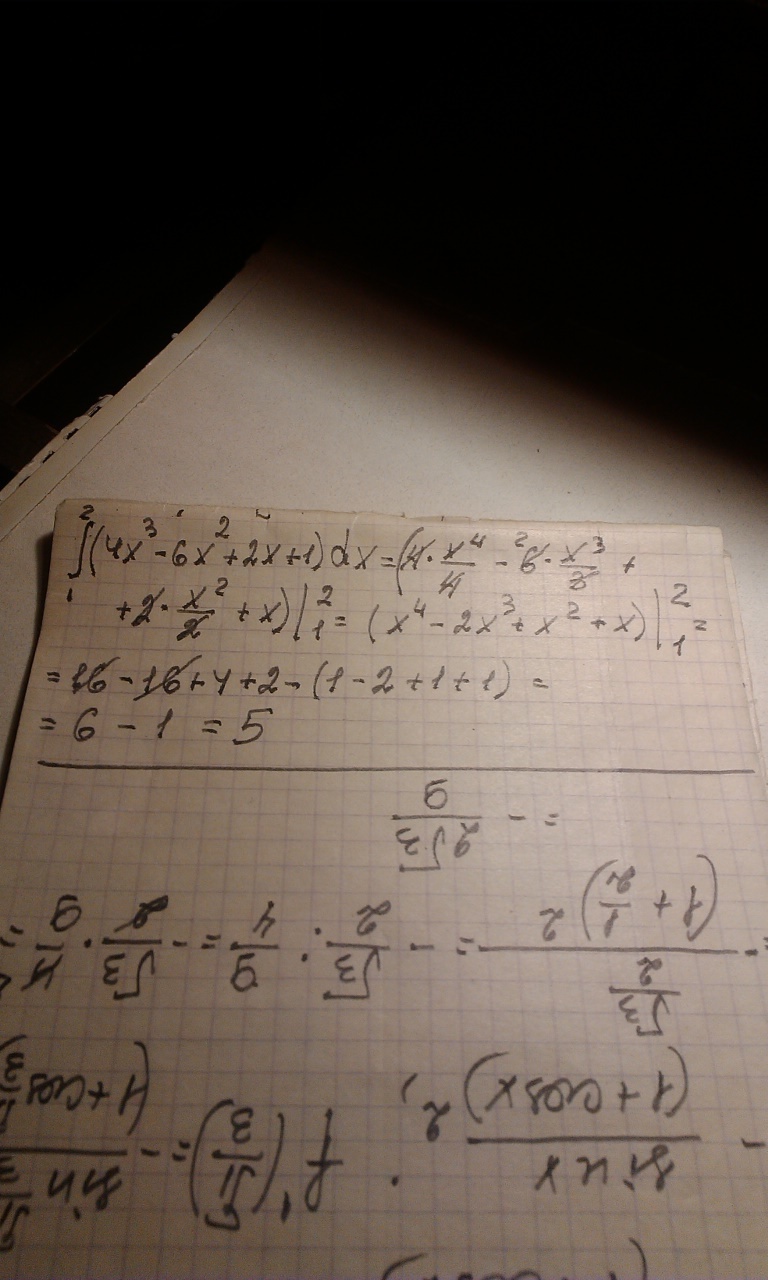 ∫₁²(4x³-6x²+2x+1)dx=(4·x⁴/4-²6·x³/3+
+2·x²/2+x)|₁²=(x⁴-2x³+x²+x)|₁²=
=16-16+4+2-(1-2+1+1)=
=6-1=5
-sin x/(1+cos x)², f'(π/3)=-sin
=-(√3/2)/(1+1/2)²=-√3/2:9/4=-√3/2·4/9=
=-2√3/9